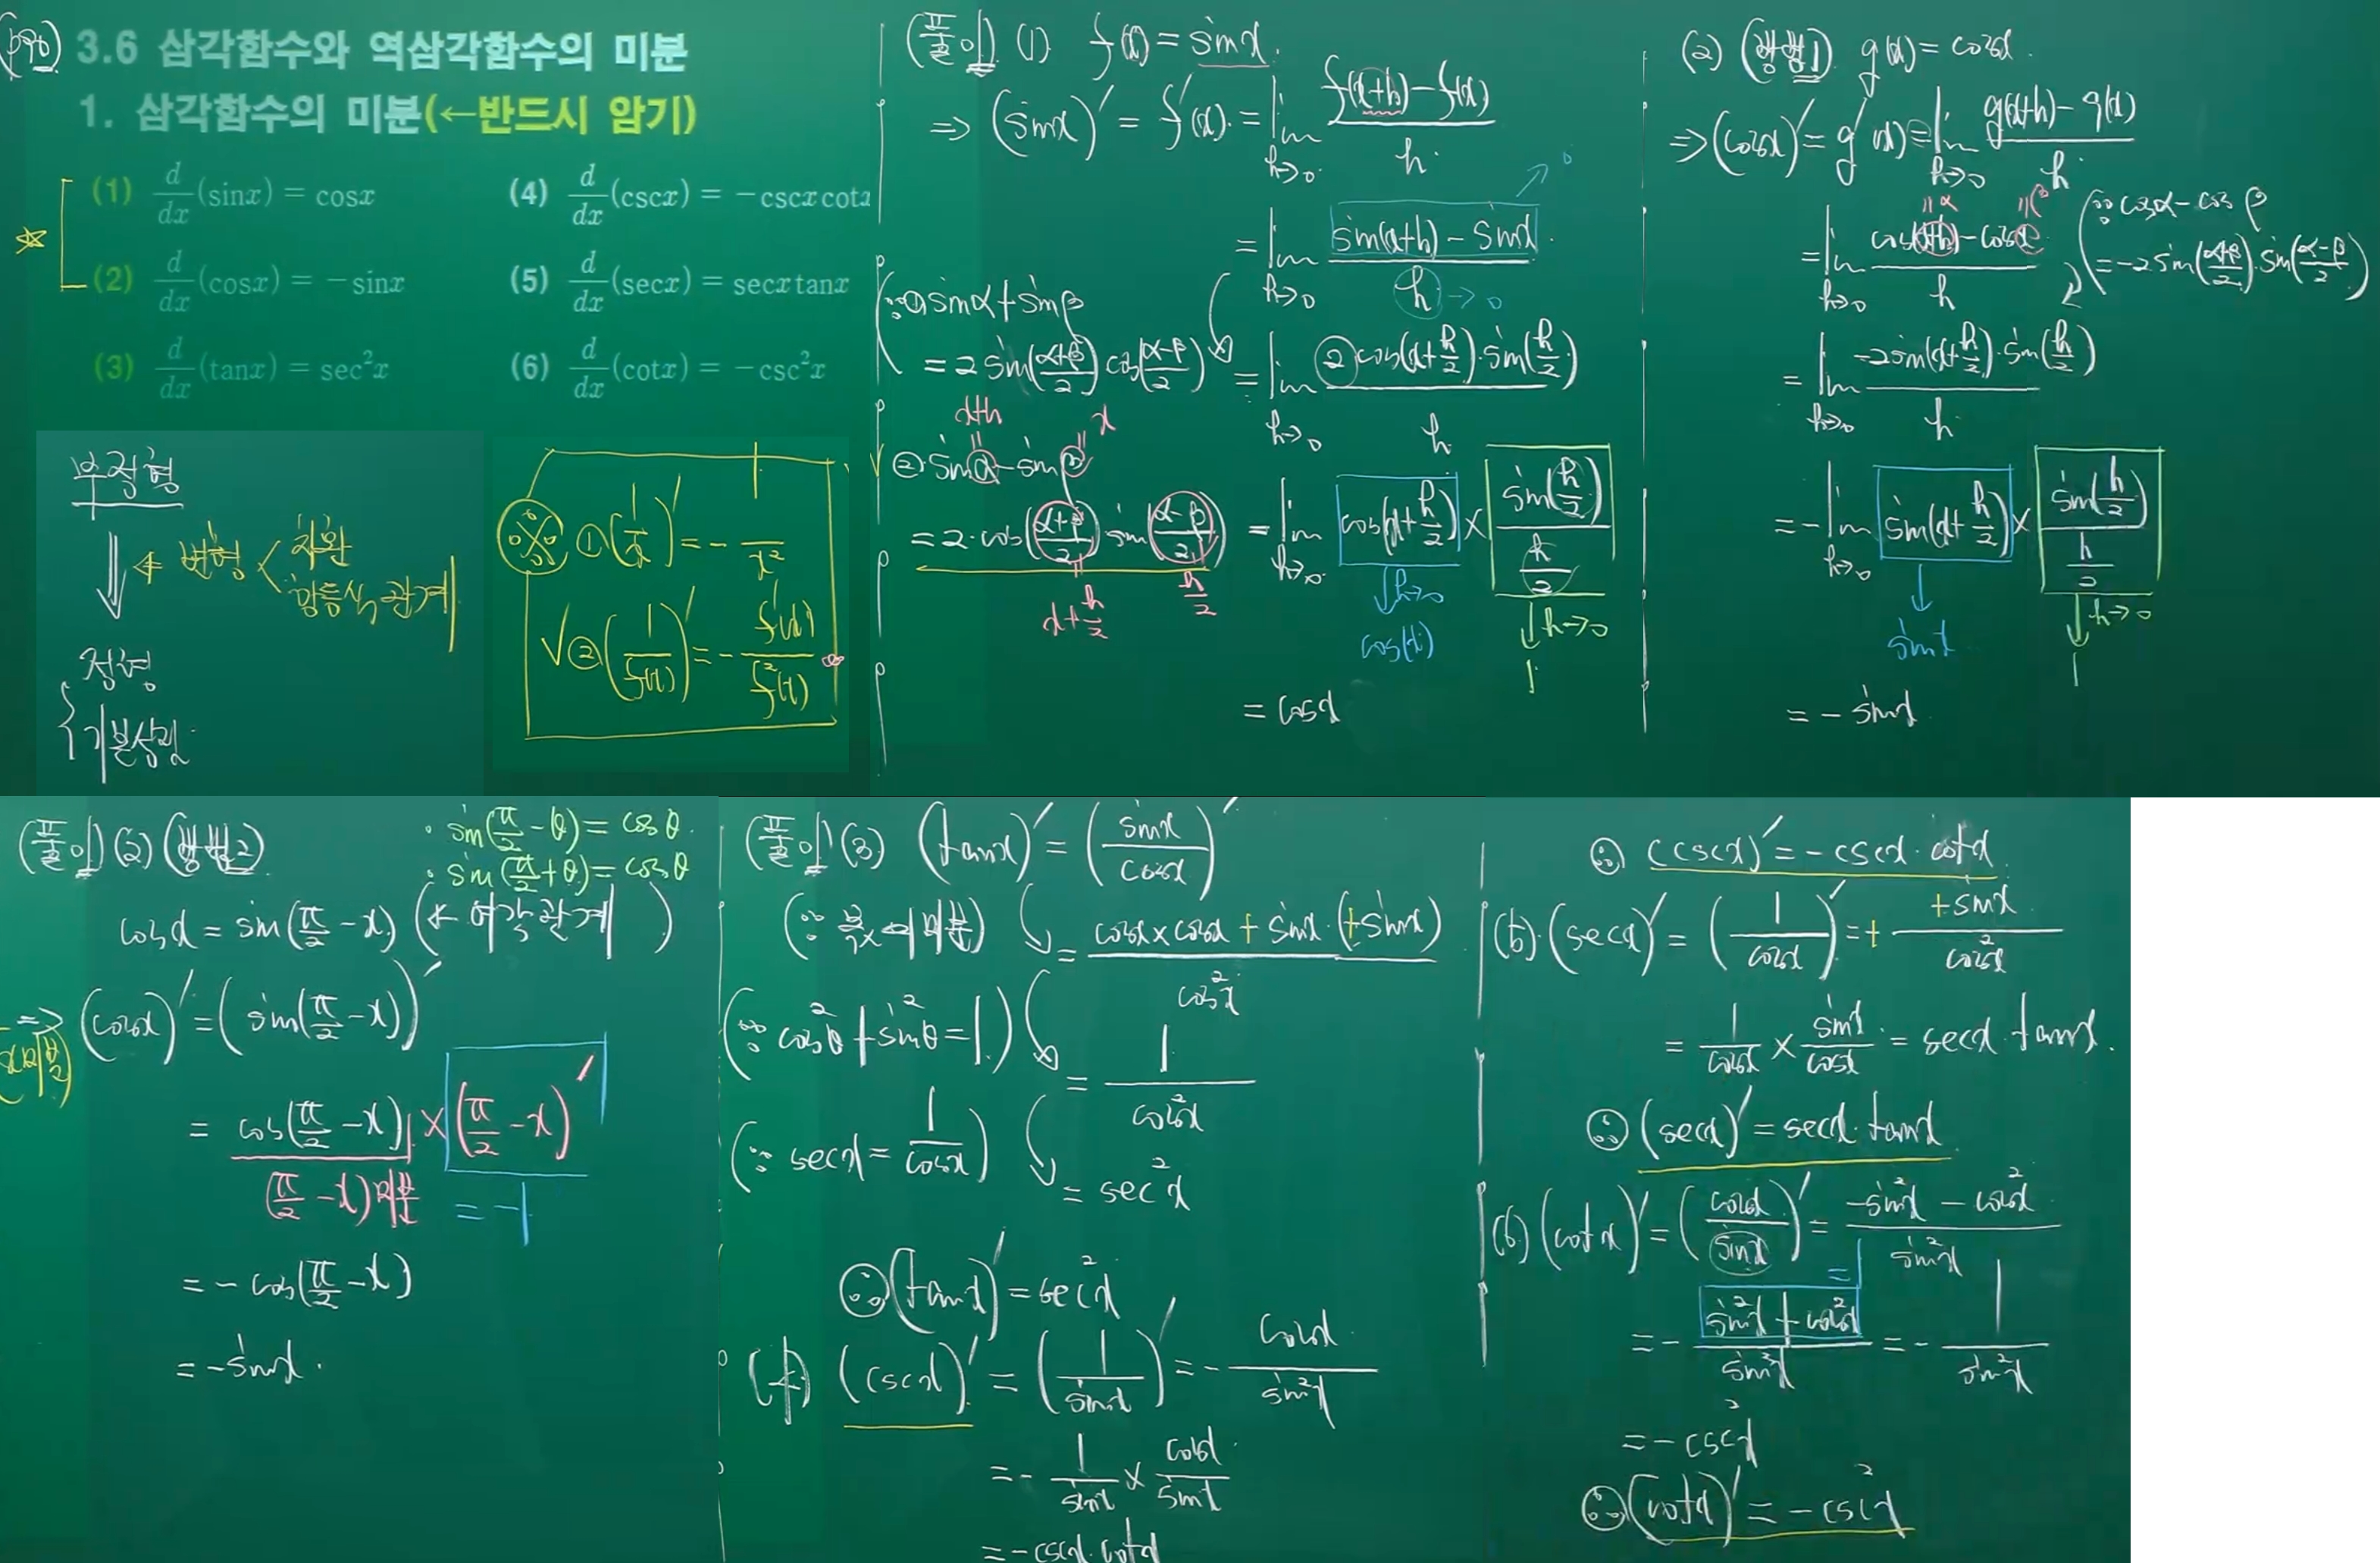 (p90) 3.6 삼각함수와 역삼각함수의 미분
1. 삼각함수의 미분(←반드시 암기)
(1) d/dx (sinx) = cosx
(2) d/dx (cosx) = −sinx
(3) d/dx (tanx) = sec²x
(4) d/dx (cscx) = −cscx cotx
(5) d/dx (secx) = secx tanx
(6) d/dx (cotx) = −csc²x
부정형
⇓ ← 변형 < 치환
항등식 관계
정형
기본성질
※ ① (1/x)' = − 1/x²
√ ② (1/f(x))' = − f'(x)/f²(x)
(풀이) (1) f(x) = sinx.
⇒ (sinx)' = f'(x) = lim h→0 f(x+h)−f(x) / h
= lim h→0 sin(x+h) − sinx / h → 0
(∵ ① sinα + sinβ
= 2 sin(α+β/2) cos(α−β/2)
x+h x
② sinα − sinβ
= 2·cos(α+β/2) sin(α−β/2)
x+h/2 h/2
= lim h→0 2 cos(x+h/2)·sin(h/2) / h
= lim h→0 cos(x+h/2) × sin(h/2) / h/2
↓h→0 ↓h→0
cos(x) 1
= cosx
(2) (방법1) g(x) = cosx.
⇒ (cosx)' = g'(x) = lim h→0 g(x+h) − g(x) / h
= lim h→0 cos(x+h) − cosx / h
(∵ cosα − cosβ
= −2 sin(α+β/2)·sin(α−β/2))
= lim h→0 −2 sin(x+h/2)·sin(h/2) / h
= −lim h→0 sin(x+h/2) × sin(h/2) / h/2
↓ ↓h→0
sinx 1
= −sinx
(풀이) (2) (방법2)
· sin(π/2 − θ) = cosθ.
· sin(π/2 + θ) = cosθ
cosx = sin(π/2 − x) (← 여각관계)
⇒ (cosx)' = (sin(π/2 − x))'
x미분
= cos(π/2 − x) × (π/2 − x)'
(π/2 − x)미분 = −1
= −cos(π/2 − x)
= −sinx.
(풀이) (3) (tanx)' = (sinx/cosx)'
(∵ 몫의 미분) = cosx × cosx + sinx·(+sinx) / cos²x
(∵ cos²θ + sin²θ = 1) = 1/cos²x
(∵ secx = 1/cosx) = sec²x
∴ (tanx)' = sec²x
(4) (cscx)' = (1/sinx)' = − cosx/sin²x
= − 1/sinx × cosx/sinx
= −cscx·cotx
∴ (cscx)' = −cscx·cotx
(5)·(secx)' = (1/cosx)' = + +sinx/cos²x
= 1/cosx × sinx/cosx = secx·tanx.
∴ (secx)' = secx·tanx
(6) (cotx)' = (cosx/sinx)' = −sin²x − cos²x / sin²x
=1
= − sin²x + cos²x / sin²x = − 1/sin²x
= −csc²x
∴ (cotx)' = −csc²x